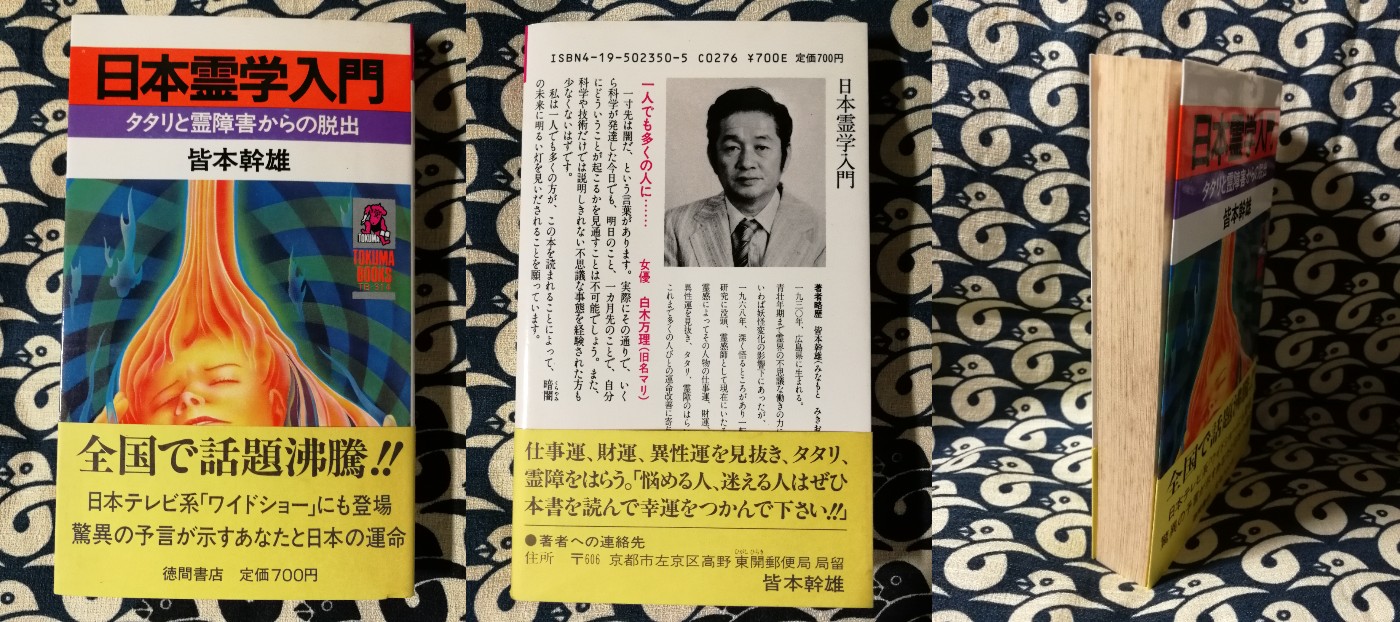 日本霊学入門
タタリと霊障害からの脱出
皆本幹雄
TOKUMA
TOKUMA
BOOKS
全国で話題沸騰!!
日本テレビ系「ワイドショー」にも登場
驚異の予言が示すあなたと日本の運命
徳間書店 定価700円
ISBN4-19-502350-5 C0276 ¥700E 定価700円
日本霊学入門
著者略歴 皆本幹雄(みなもと みきお
一九三〇年、広島県に生まれる。
青壮年期まで霊界の不思議な働きの力に
いわば妖怪変化の影響下にあったが、
一九六八年、深く悟るところがあり一
研究に没頭、霊感師として現在にいた
霊感によってその人物の仕事運、財運、
異性運を見抜き、タタリ、霊障のはら
これまで多くの人びとの運命改善に寄
一人でも多くの人に…… 女優 白木万理(旧名マリ)
一寸先は闇だ、という言葉があります。実際にその通りで、いく
ら科学が発達した今日でも、明日のこと、一カ月先のことで、自分
にどういうことが起こるかを見通すことは不可能でしょう。また、
科学や技術だけでは説明しきれない不思議な事態を経験された方も
少なくないはずです。
私は一人でも多くの方が、この本を読まれることによって、暗闇
くらやみ
の未来に明るい灯を見いだされることを願っています。
仕事運、財運、異性運を見抜き、タタリ、
霊障をはらう。「悩める人、迷える人はぜひ
本書を読んで幸運をつかんで下さい!!」
●著者への連絡先
住所 〒606 京都市左京区高野東開郵便局局留
ひがし ひらき
皆本幹雄
日本霊学入門
タタリと霊障害からの脱出
皆本幹雄
全国で話題沸騰